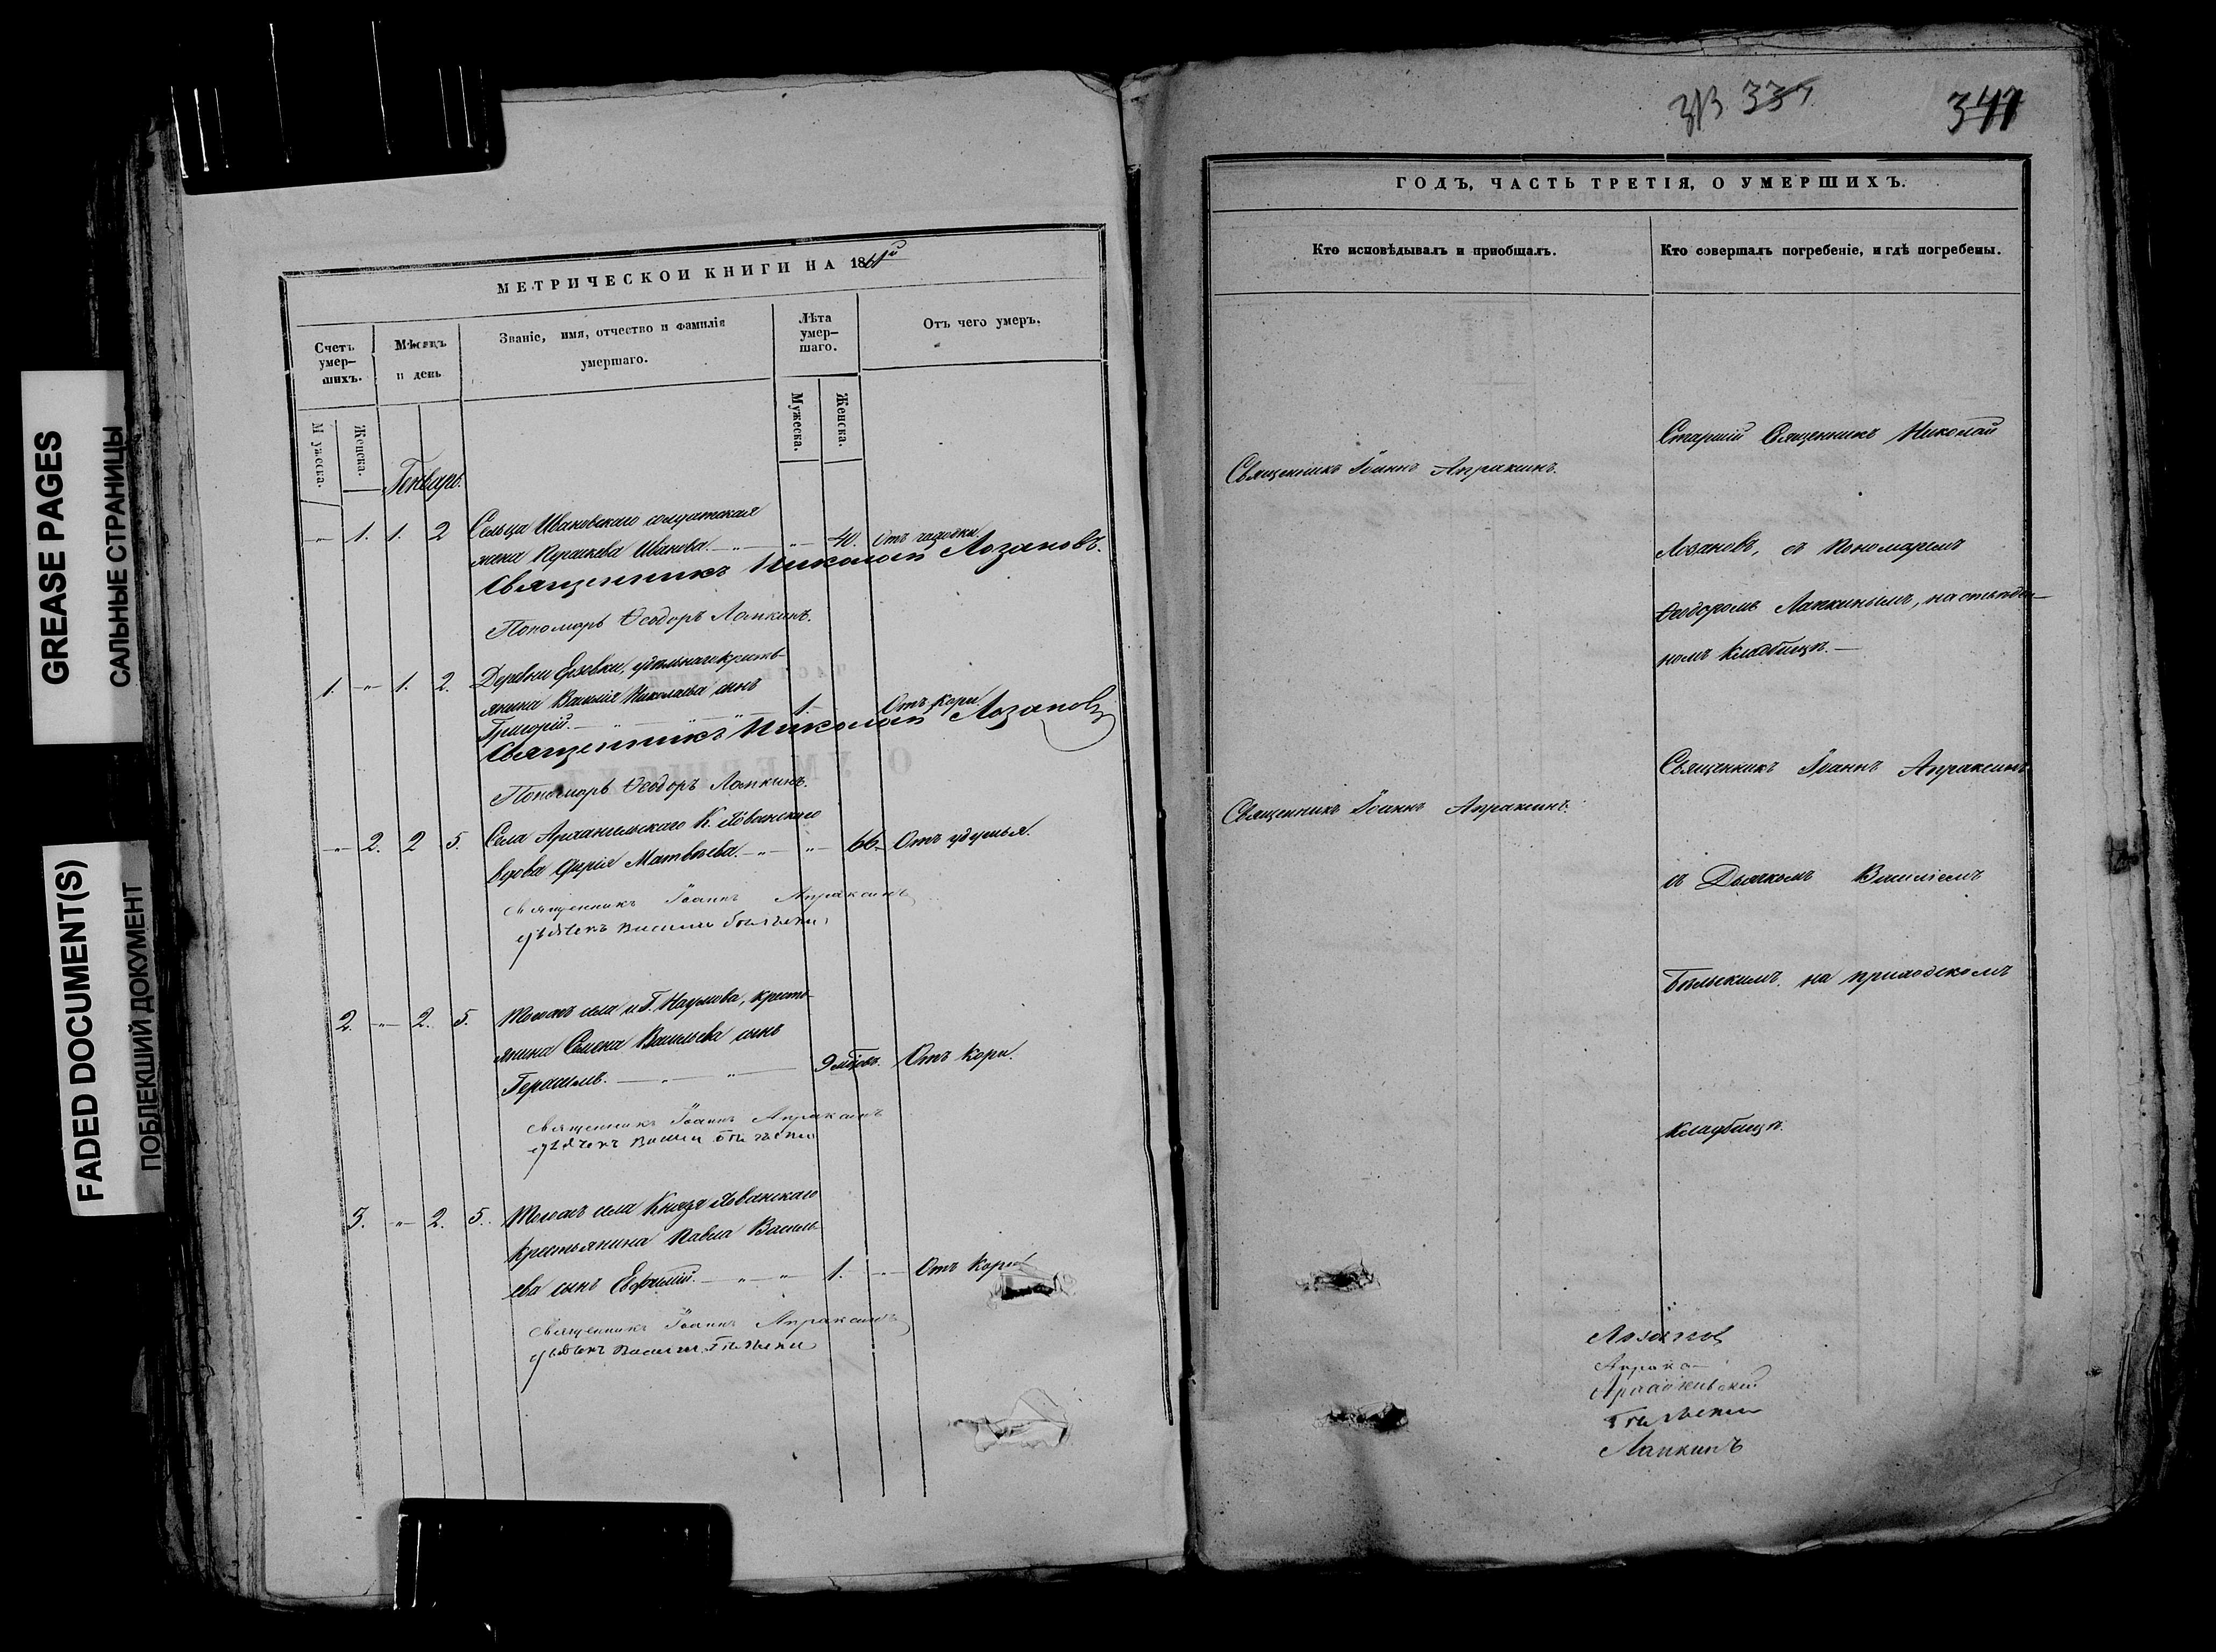 GREASE PAGES
САЛЬНЫЕ СТРАНИЦЫ
FADED DOCUMENT(S)
ПОБЛЕКШИЙ ДОКУМЕНТ
МЕТРИЧЕСКОЙ КНИГИ НА 1861й
Счетъ умер-шихъ.
Мѣсяцъ и день
Званіе, имя, отчество и фамилія умершаго.
Лѣта умер-шаго.
Отъ чего умеръ.
Мужеска.
Женска.
Мужеска.
Женска.
Генварь.
„ 1. 1. 2 Сельца Ивановскаго солдатская
жена Параскева Иванова. „ 40. Отъ чахотки.
Священникъ Николай Лозановъ.
Пономарь Ѳеодоръ Лапкинъ.
1. „ 1. 2. Деревни Езовки, удѣльнаго кресть-
янина Василія Николаева сынъ
Григорій. 1. Отъ кори.
Священникъ Николай Лозановъ
Пономарь Ѳеодоръ Лапкинъ.
„ 2. 2 5. Села Архангельскаго К. Хованскаго
вдова Матвѣева. „ 66. Отъ удушья.
Священникъ Іоаннъ Апраксинъ
дьячекъ Василій Бѣльскій
2. „ 2. 5. Тогожъ села и Г. Наумова, кресть-
янина Семена Васильева сынъ
Герасимъ. 9 мѣсяц. Отъ кори.
Священникъ Іоаннъ Апраксинъ
дьячекъ Василій Бѣльскій
3. „ 2. 5. Тогожъ села Князя Хованскаго
крестьянина Павла Василь-
ева сынъ Евфимій. 1. „ Отъ кори
Священникъ Іоаннъ Апраксинъ
дьячекъ Василій Бѣльскій
313 337
341
ГОДЪ, ЧАСТЬ ТРЕТІЯ, О УМЕРШИХЪ.
Кто исповѣдывалъ и пріобщалъ.
Кто совершалъ погребеніе, и гдѣ погребены.
Священникъ Іоаннъ Апраксинъ.
Старшій Священникъ Николай
Лозановъ, съ Пономаремъ
Ѳеодоромъ Лапкинымъ, на
номъ кладбищѣ.—
Священникъ Іоаннъ Апраксинъ.
Священникъ Іоаннъ Апраксинъ
съ Дьячкомъ Василіемъ
Бѣльскимъ, на приходскомъ
кладбищѣ.
Лозановъ
Апракс
Архангельскій
Бѣльскій
Лапкинъ